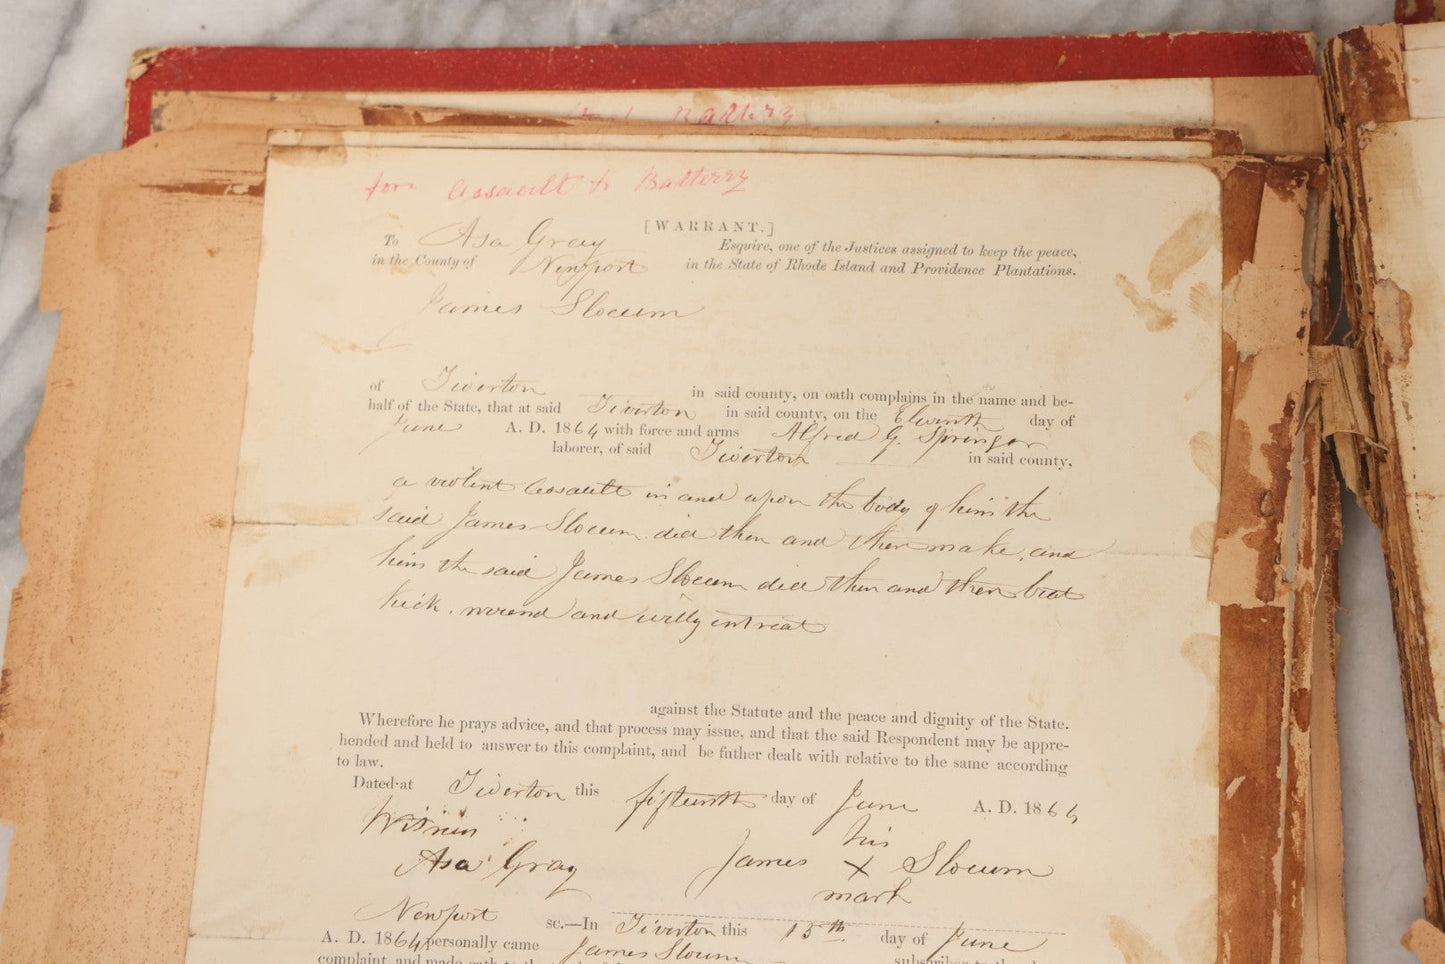 Battery
for Assault & Battery
[WARRANT.]
To Asa Gray Esquire, one of the Justices assigned to keep the peace,
in the County of Newport in the State of Rhode Island and Providence Plantations.
James Slocum
of Tiverton in said county, on oath complains in the name and be-
half of the State, that at said Tiverton in said county, on the Elventh day of
June A. D. 1864 with force and arms Alfred G. Springer
laborer, of said Tiverton in said county,
a violent assault in and upon the body of him the
said James Slocum did then and there make, and
him the said James Slocum did then and there beat
kick, wound and evilly intreat
against the Statute and the peace and dignity of the State.
Wherefore he prays advice, and that process may issue, and that the said Respondent may be appre-
hended and held to answer to this complaint, and be futher dealt with relative to the same according
to law.
Dated at Tiverton this fifteenth day of June A. D. 1864
Witness his
Asa Gray James X Slocum
mark
Newport sc.—In Tiverton this 15th day of June
A. D. 1864 personally came James Slocum
complaint, and made oath to the